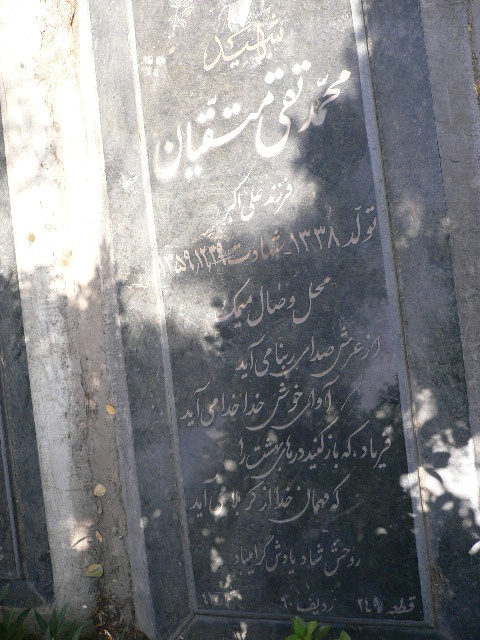 شهید
محمد تقی متقیان
فرزند علی اکبر
تولد ۱۳۳۸ شهادت
محل وصال میمک
از عرش صدای ربنا می آید
آوای خوش خدا خدا می آید
فریاد که باز کنید درهای بهشت را
که مهمان خدا از کربلا می آید
روحش شاد یادش گرامی باد
قطعه ۲۴ ردیف